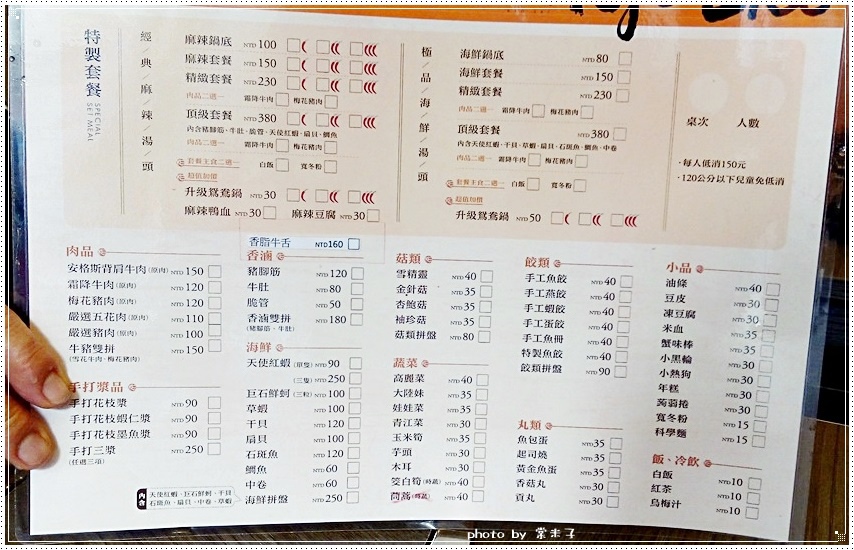 特製套餐
SPECIAL SET MEAL
經典/麻/辣/湯/頭
麻辣鍋底 NTD 100
麻辣套餐 NTD 150
精緻套餐 NTD 230
肉品二選一 霜降牛肉 梅花豬肉
頂級套餐 NTD 380
內含豬腳筋、牛肚、脆管、天使紅蝦、扇貝、鯛魚
霜降牛肉 梅花豬肉
套餐主食二選一 白飯 寬冬粉
超值加價
升級鴛鴦鍋 NTD 30
麻辣鴨血 NTD 30 麻辣豆腐 NTD 30
極/品/海/鮮/湯/頭
海鮮鍋底 NTD 80
海鮮套餐 NTD 150
精緻套餐 NTD 230
肉品二選一 霜降牛肉 梅花豬肉
頂級套餐 NTD 380
內含天使紅蝦、干貝、草蝦、扇貝、石斑魚、鯛魚、中卷
肉品二選一 霜降牛肉 梅花豬肉
套餐主食二選一 白飯 寬冬粉
超值加價
升級鴛鴦鍋 NTD 50
桌次 人數
·每人低消150元
·120公分以下兒童免低消
肉品
安格斯背肩牛肉(原肉) NTD 150
霜降牛肉(原肉) NTD 120
梅花豬肉(原肉) NTD 120
嚴選五花肉(原肉) NTD 110
嚴選豬肉(原肉) NTD 100
牛豬雙拼 NTD 150
(雪花牛肉、梅花豬肉)
手打漿品
手打花枝漿 NTD 90
手打花枝蝦仁漿 NTD 90
手打花枝墨魚漿 NTD 90
手打三漿 NTD 250
(任選三項)
香脂牛舌 NTD 160
香滷
豬腳筋 NTD 120
牛肚 NTD 80
脆管 NTD 50
香滷雙拼 NTD 180
(豬腳筋、牛肚)
海鮮
天使紅蝦(單隻) NTD 90
(三隻) NTD 250
巨石鮮蚵(三粒) NTD 100
草蝦 NTD 100
干貝 NTD 120
扇貝 NTD 100
石斑魚 NTD 120
鯛魚 NTD 60
中卷 NTD 60
海鮮拼盤 NTD 250
內含 天使紅蝦、巨石鮮蚵、干貝
石斑魚、扇貝、中卷、草蝦
菇類
雪精靈 NTD 40
金針菇 NTD 35
杏鮑菇 NTD 35
袖珍菇 NTD 35
菇類拼盤 NTD 80
蔬菜
高麗菜 NTD 40
大陸妹 NTD 35
娃娃菜 NTD 35
青江菜 NTD 30
玉米筍 NTD 35
芋頭 NTD 30
木耳 NTD 30
筊白筍(時蔬) NTD 40
茼蒿(時蔬) NTD 40
餃類
手工魚餃 NTD 40
手工燕餃 NTD 40
手工蝦餃 NTD 40
手工蛋餃 NTD 40
手工魚冊 NTD 40
特製魚餃 NTD 40
餃類拼盤 NTD 90
丸類
魚包蛋 NTD 35
起司燒 NTD 35
黃金魚蛋 NTD 35
香菇丸 NTD 30
貢丸 NTD 30
小品
油條 NTD 40
豆皮 NTD 30
凍豆腐 NTD 30
米血 NTD 35
蟹味棒 NTD 35
小黑輪 NTD 30
小熱狗 NTD 30
年糕 NTD 30
蒟蒻捲 NTD 30
寬冬粉 NTD 15
科學麵 NTD 15
飯、冷飲
白飯 NTD 10
紅茶 NTD 10
烏梅汁 NTD 10
photo by 棠未子